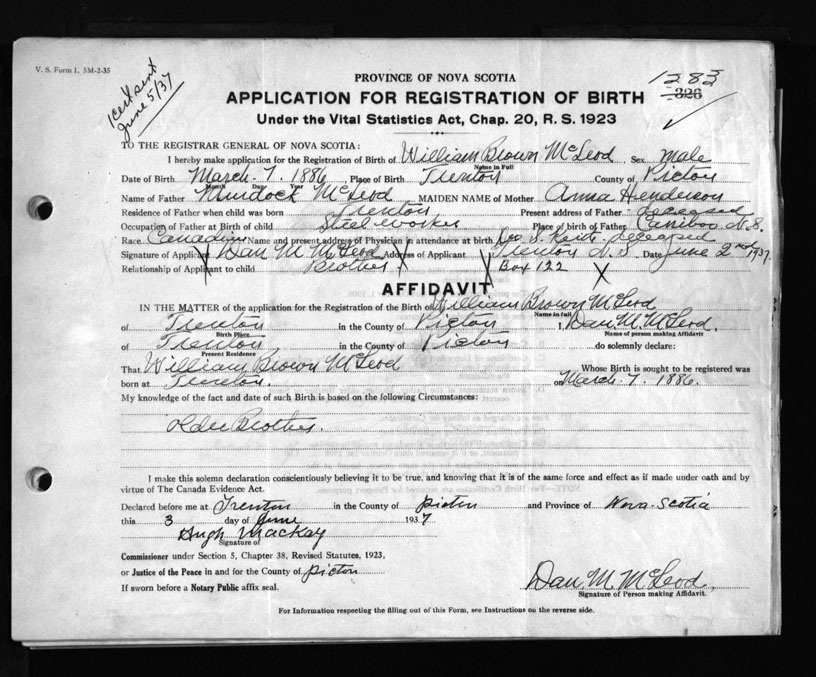 V. S. Form 1. 5M-2-35
Cert sent
June 5/37
PROVINCE OF NOVA SCOTIA
1283
326
APPLICATION FOR REGISTRATION OF BIRTH
Under the Vital Statistics Act, Chap. 20, R. S. 1923
TO THE REGISTRAR GENERAL OF NOVA SCOTIA:
I hereby make application for the Registration of Birth of William Brown McLeod Sex male
Name in Full
Date of Birth March 7. 1886 Place of Birth Trenton County of Pictou
Month Day Year
Name of Father Murdock McLeod MAIDEN NAME of Mother Anna Henderson
Residence of Father when child was born Trenton Present address of Father deceased
Occupation of Father at Birth of child Steel Worker Place of birth of Father Cariboo N.S.
Race Canadian Name and present address of Physician in attendance at birth Keith deceased
Signature of Applicant Dan M McLeod Address of Applicant Trenton N S Date June 2nd 1937
Relationship of Applicant to child Brother Box 122
AFFIDAVIT
IN THE MATTER of the application for the Registration of the Birth of William Brown McLeod
Name in full
of Trenton in the County of Pictou I, Dan. M. McLeod.
Birth Place Name of person making Affidavit
of Trenton in the County of Pictou do solemnly declare:
Present Residence
That William Brown McLeod Whose Birth is sought to be registered was
born at Trenton. on March. 7. 1886.
My knowledge of the fact and date of such Birth is based on the following Circumstances:
older Brother.
I make this solemn declaration conscientiously believing it to be true, and knowing that it is of the same force and effect as if made under oath and by
virtue of The Canada Evidence Act.
Declared before me at Trenton in the County of Pictou and Province of Nova-Scotia
this 3 day of June 1937
Hugh Mackay
Signature of
Commissioner under Section 5, Chapter 38, Revised Statutes, 1923,
or Justice of the Peace in and for the County of Pictou
Dan. M. McLeod.
If sworn before a Notary Public affix seal.
Signature of Person making Affidavit.
For Information respecting the filling out of this Form, see Instructions on the reverse side.